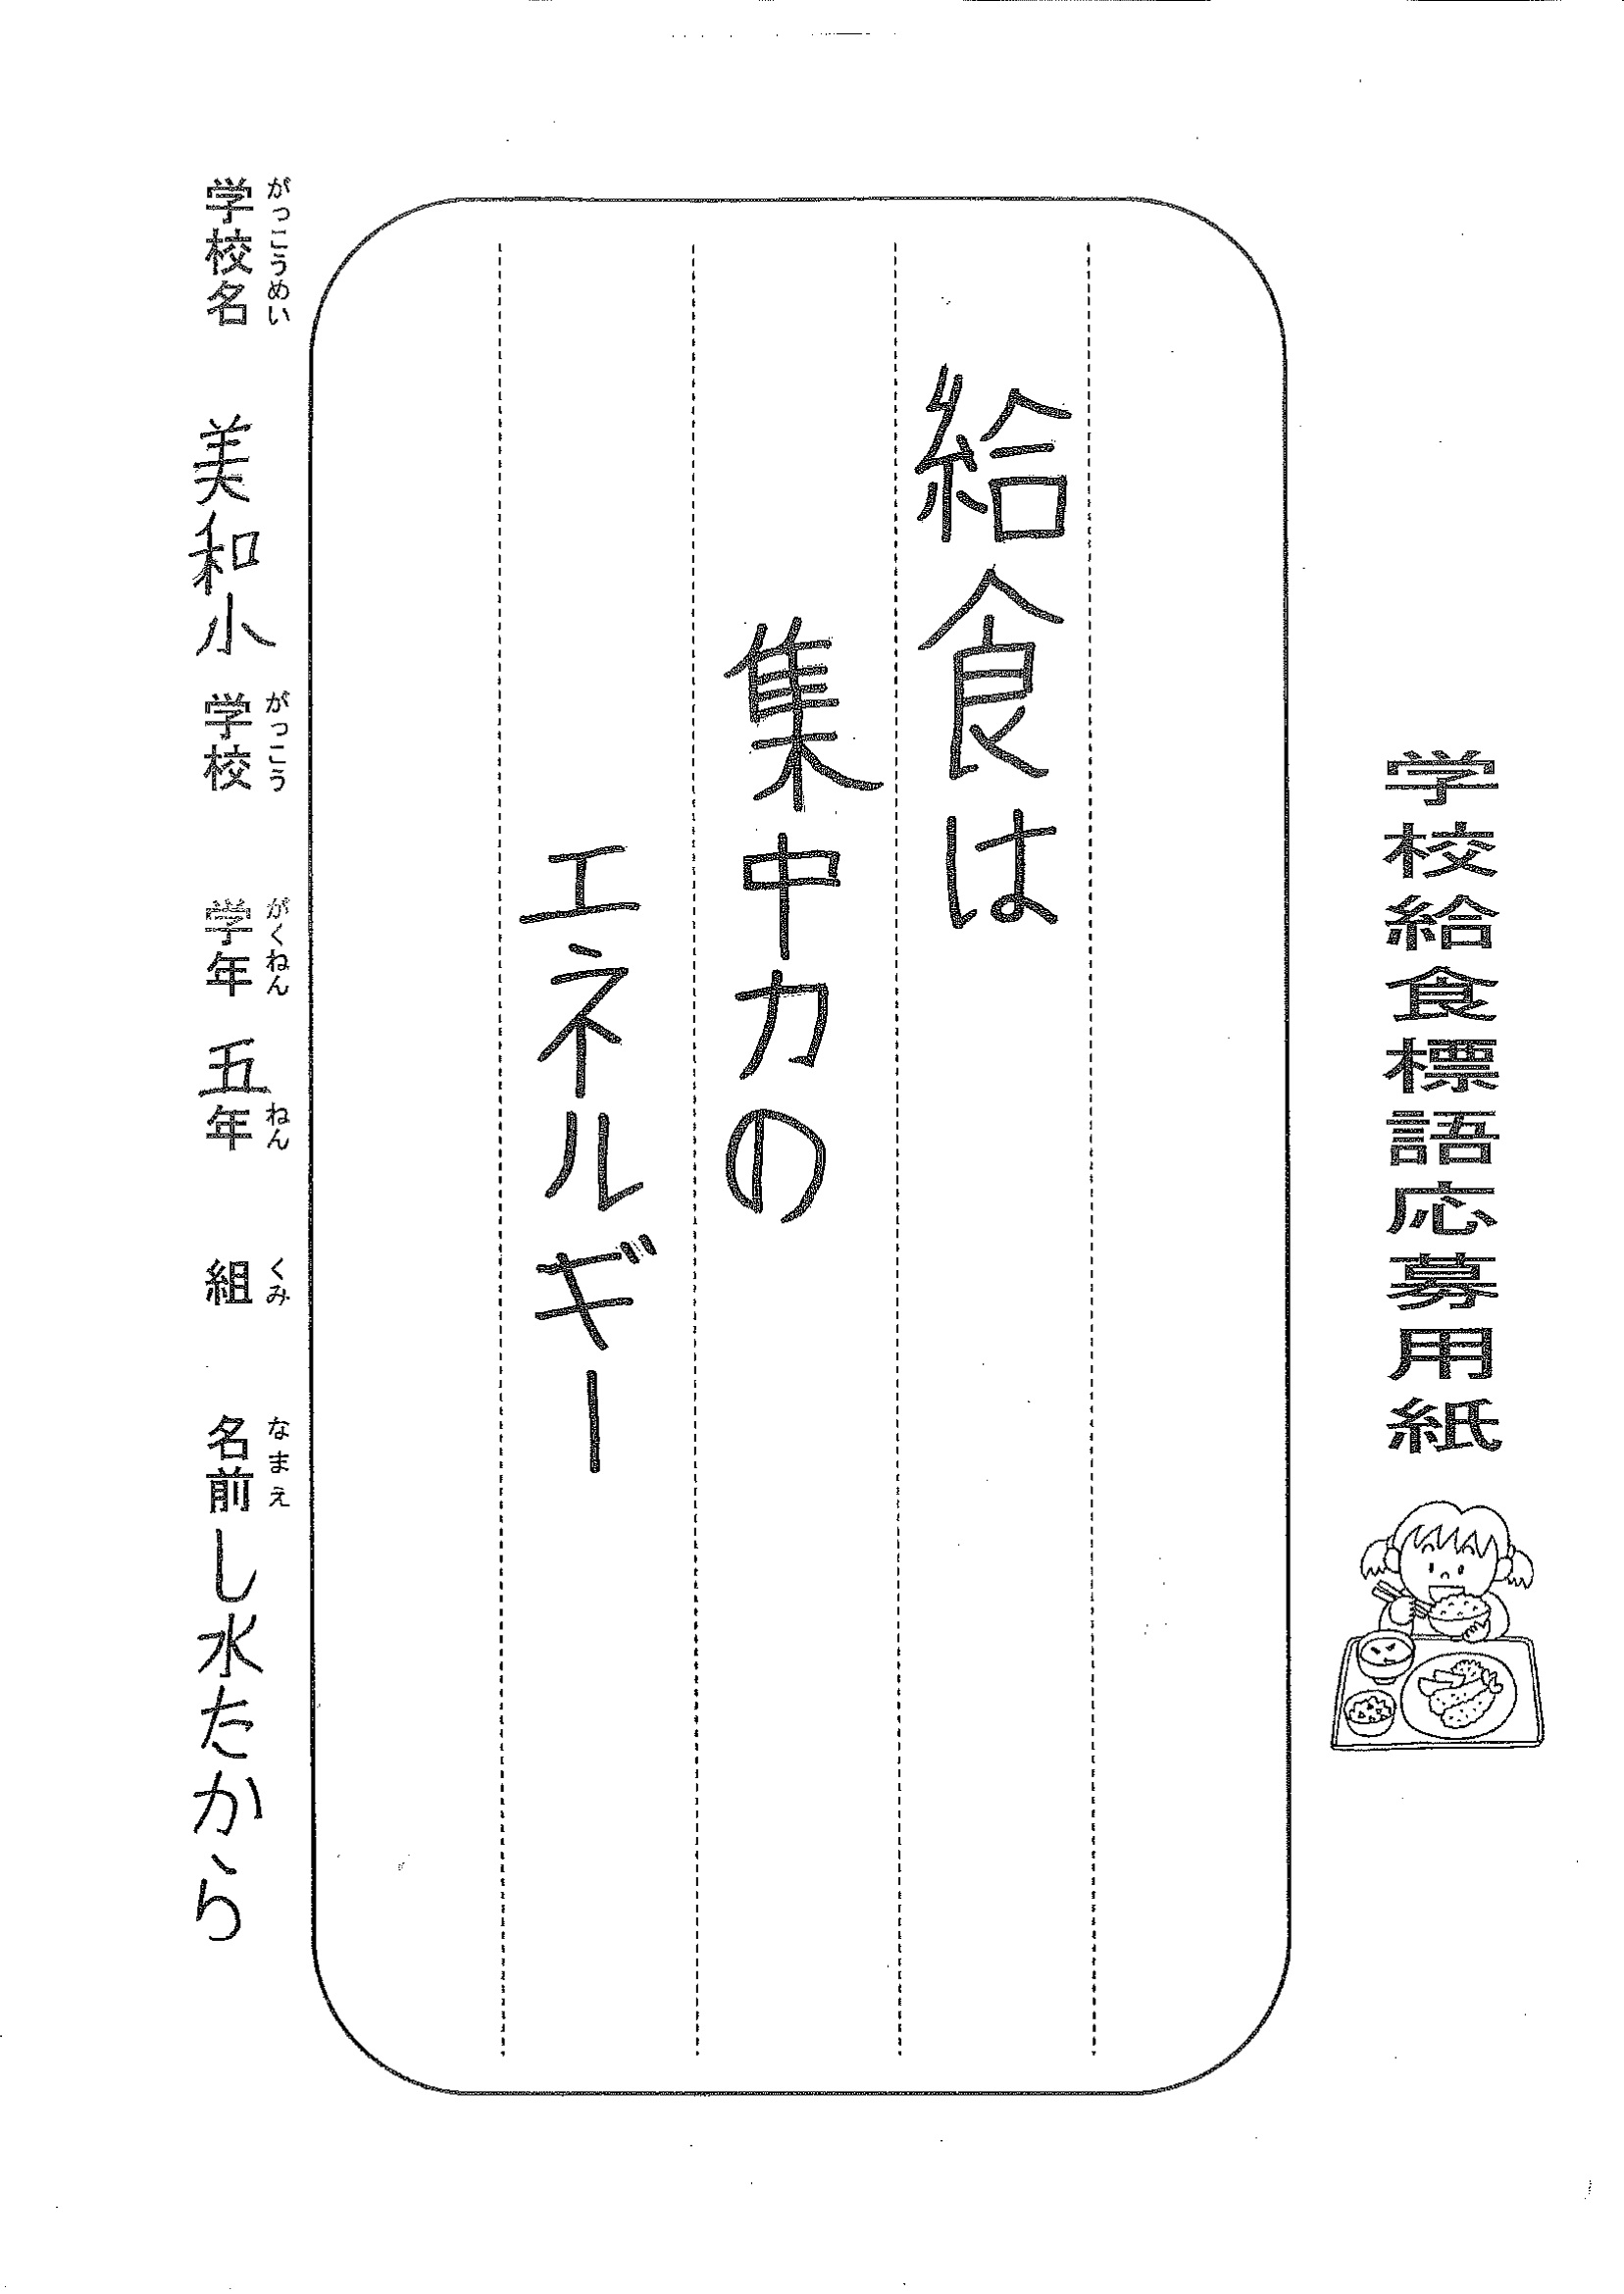 学校給食標語応募用紙
給食は
集中力の
エネルギー
学校名 美和小 学校 学年 五年 組 名前 し水たから
がっこうめい がっこう がくねん ねん くみ なまえ